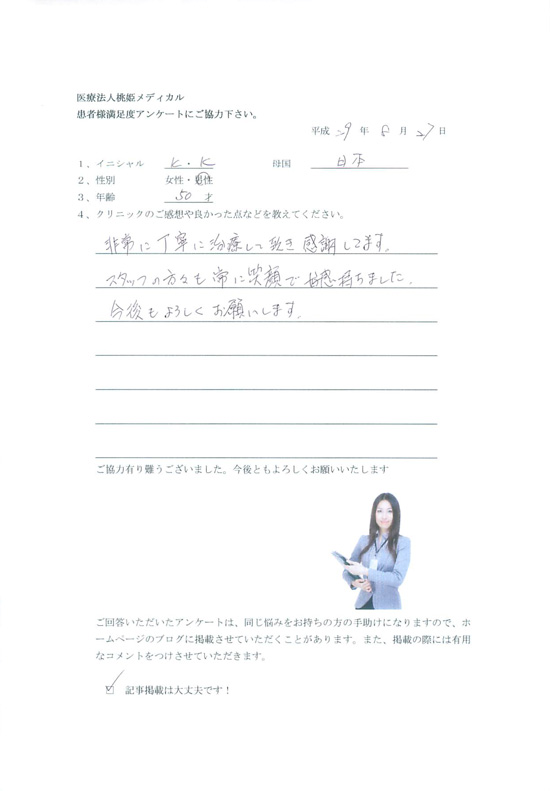 医療法人桃姫メディカル
患者様満足度アンケートにご協力下さい。
平成 29 年 8 月 27 日
1、イニシャル K・K 母国 日本
2、性別 女性・男性
3、年齢 50 才
4、クリニックのご感想や良かった点などを教えてください。
非常に丁寧に治療して頂き感謝してます。
スタッフの方々も常に笑顔で好感持ちました。
今後もよろしくお願いします。
ご協力有り難うございました。今後ともよろしくお願いいたします
ご回答いただいたアンケートは、同じ悩みをお持ちの方の手助けになりますので、ホ
ームページのブログに掲載させていただくことがあります。また、掲載の際には有用
なコメントをつけさせていただきます。
記事掲載は大丈夫です!